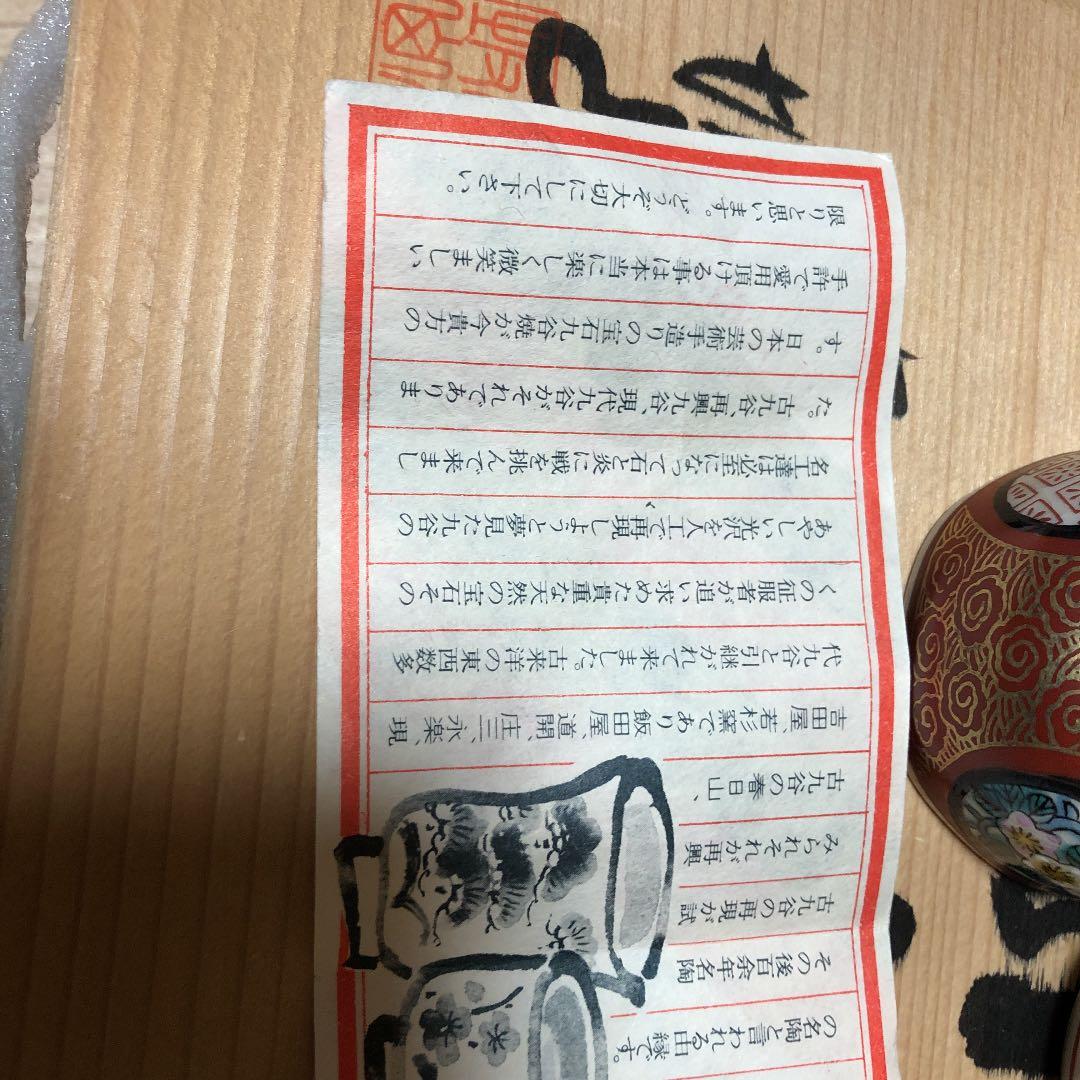 の名陶と言われる由縁です。
その後百余年名陶
古九谷の再現が試
みられそれが再興
古九谷の春日山、
吉田屋、若杉窯であり飯田屋、道開、庄三、永楽、現
代九谷と引継がれて来ました。古来洋の東西数多
くの征服者が追い求めた貴重な天然の宝石その
あやしい光沢を人工で再現しようと夢見た九谷の
名工達は必至になって石と炎に戦を挑んで来まし
た。古九谷、再興九谷、現代九谷がそれでありま
す。日本の芸術手造りの宝石九谷焼が今貴方の
手許で愛用頂ける事は本当に楽しく微笑ましい
限りと思います。どうぞ大切にして下さい。